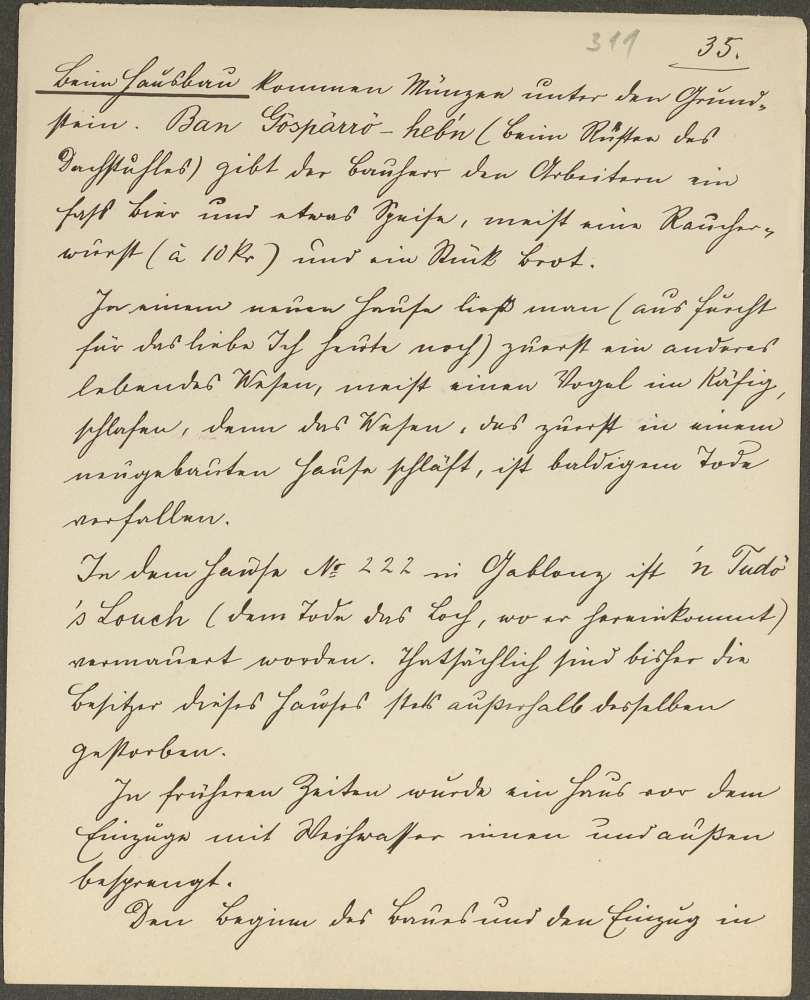 311 35.
Beim Hausbau kommen Münzen unter den Grund-
stein. Ban Gospärrö-heb'n (beim Rüsten des
Dachstuhles) gibt der Bauherr den Arbeitern ein
Faß Bier und etwas Speise, meist eine Raucher-
wurst (à 10 Kr) und ein Stück Brot.
In einem neuen Hause ließ man (aus Furcht
für das liebe Ich heute noch) zuerst ein anderes
lebendes Wesen, meist einen Vogel im Käfig,
schlafen, denn das Wesen, das zuerst in einem
neugebauten Hause schläft, ist baldigem Tode
verfallen.
In dem Hause No 222 in Gablonz ist 'n Tudö
's Louch (dem Tode das Loch, wo er hereinkommt)
vermauert worden. Thatsächlich sind bisher die
Besitzer dieses Hauses stets außerhalb desselben
gestorben.
In früheren Zeiten wurde ein Haus vor dem
Einzuge mit Weihwasser innen und außen
besprengt.
Den Beginn des Baues und den Einzug in